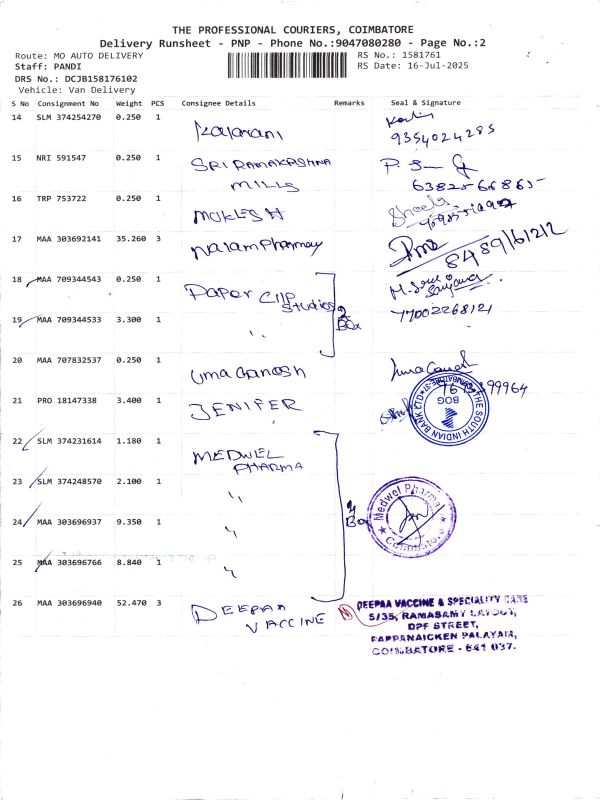 THE PROFESSIONAL COURIERS, COIMBATORE
Delivery Runsheet - PNP - Phone No.:9047080280 - Page No.:2
Route: MO AUTO DELIVERY
RS No.: 1581761
Staff: PANDI
RS Date: 16-Jul-2025
DRS No.: DCJB158176102
Vehicle: Van Delivery
S No Consignment No Weight PCS Consignee Details Remarks Seal & Signature
14 SLM 374254270 0.250 1 Kalarani
9354024285
15 NRI 591547 0.250 1 SRI RAMAKRISHNA
MILLS
63825 66865
16 TRP 753722 0.250 1 MUKLESH
17 MAA 303692141 35.260 3 Nalam Pharmay
8489161212
18 MAA 709344543 0.250 1 Paper Clip
Studios
2 Box
19 MAA 709344533 3.300 1 "
77002268121
20 MAA 707832537 0.250 1 Uma Ganesh
Uma Ganesh
21 PRO 18147338 3.400 1 JENIFER
THE SOUTH INDIAN BANK LTD
BOG
22 SLM 374231614 1.180 1 MEDWEL
PHARMA
23 SLM 374248570 2.100 1 "
4 Box
24 MAA 303696937 9.350 1 "
Medwel Pharma
Coimbatore
25 MAA 303696766 8.840 1 "
26 MAA 303696940 52.470 3 DEEPAA
VACCINE
DEEPAA VACCINE & SPECIALITY CARE
5/35, RAMASAMY LAYOUT,
DPF STREET,
PAPPANAICKEN PALAYAM,
COIMBATORE - 641 037.